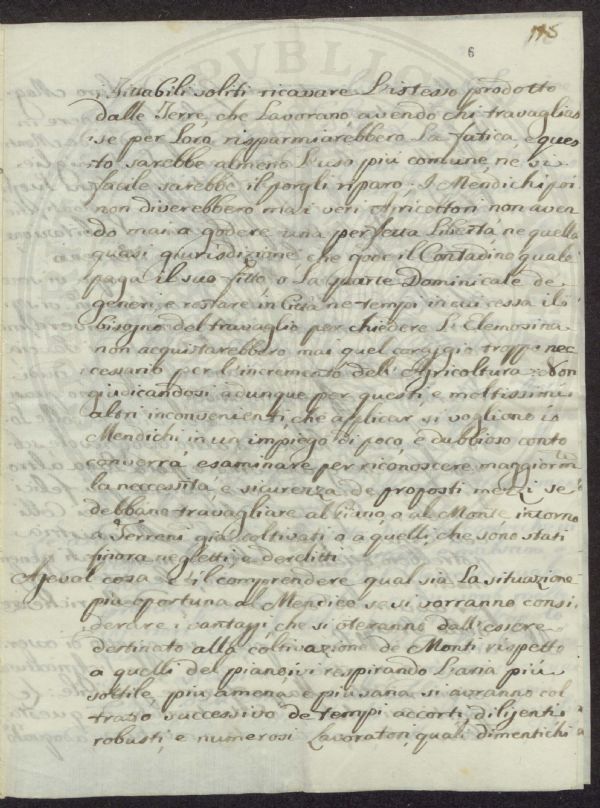 115
6
Fittabili soliti ricavare l'istesso prodotto
dalle Terre, che Lavorano avendo chi travaglias
se per Loro, risparmiarebbero La fatica, e ques
to sarebbe almeno l'uso più comune, ne si
facile sarebbe il porgli riparo. I Mendichi poi
non diverebbero mai veri Agricoltori non aven
do mai a godere una perfetta Libertà, ne quella
quasi giurisdizione, che gode il Contadino, quale
paga il suo fitto, o La quarte Dominicale de
generi, e restare in Città ne tempi in cui cessa il
bisogno del travaglio per chiedere L'Elemosina
non acquistarebbero mai quel coraggio troppo nec
cessario per l'incremento dell'Agricoltura. Non
giudicandosi adunque per questi, e moltissimi
altri inconvenienti, che applicar si vogliono i
Mendichi in un impiego di poco, e dubbioso conto
converrà esaminare per riconoscere maggiorm.
la neccessità, e sicurezza de proposti mezzi se
debbano travagliare al Piano, o al Monte intorno
a Terreni già coltivati o a quelli, che sono stati
finora negletti, e derelitti
Agevol cosa è il comprendere qual sia La situazione
più oportuna al Mendico se si vorranno consi
derare i vantaggi, che si oteranno dall'essere
destinato alla coltivazione de Monti rispetto
a quelli del piano ivi respirando L'aria più
sottile, più amena, e più sana si avranno col
tratto successivo de tempi accorti, diligenti
robusti, e numerosi Lavoratori, quali dimentichi